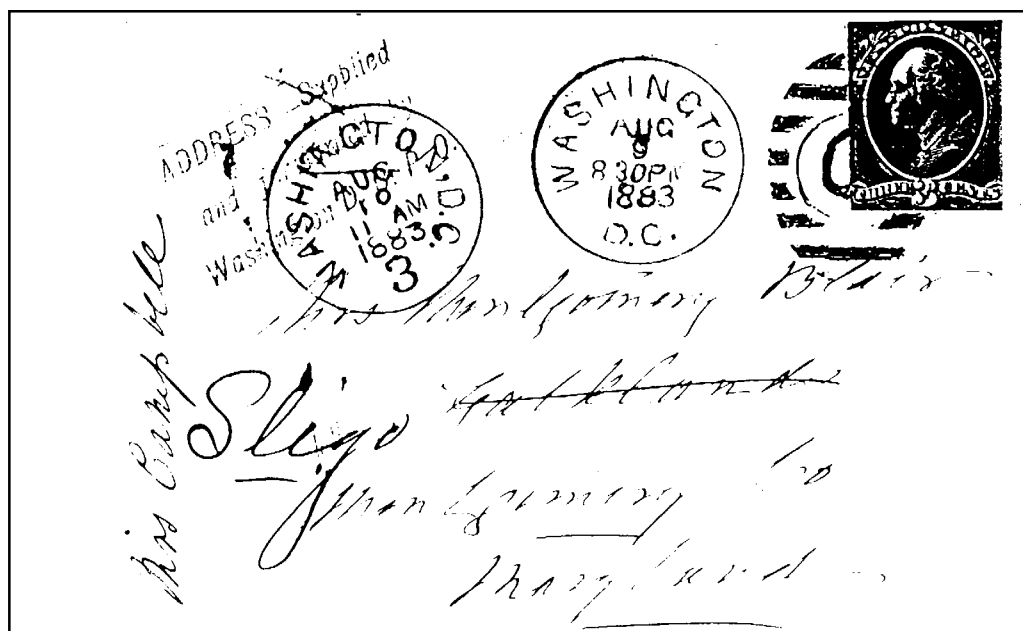 ADDRESS Supplied
and
Washington D.C. P.O.
WASHINGTON, D.C.
AUG
10
11 AM
1883
3
WASHINGTON
AUG
9
8 30 PM
1883
D.C.
U.S. POSTAGE
THREE 3 CENTS
Mrs Montgomery Blair
Sligo
Montgomery Co
Maryland
Mrs Campbelle